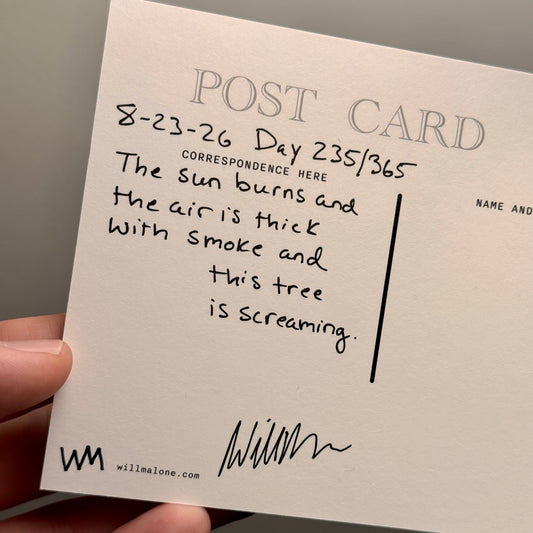 POST CARD
8-23-26 Day 235/365
CORRESPONDENCE HERE
The sun burns and
the air is thick
with smoke and
this tree
is screaming.
NAME AND
WM willmalone.com